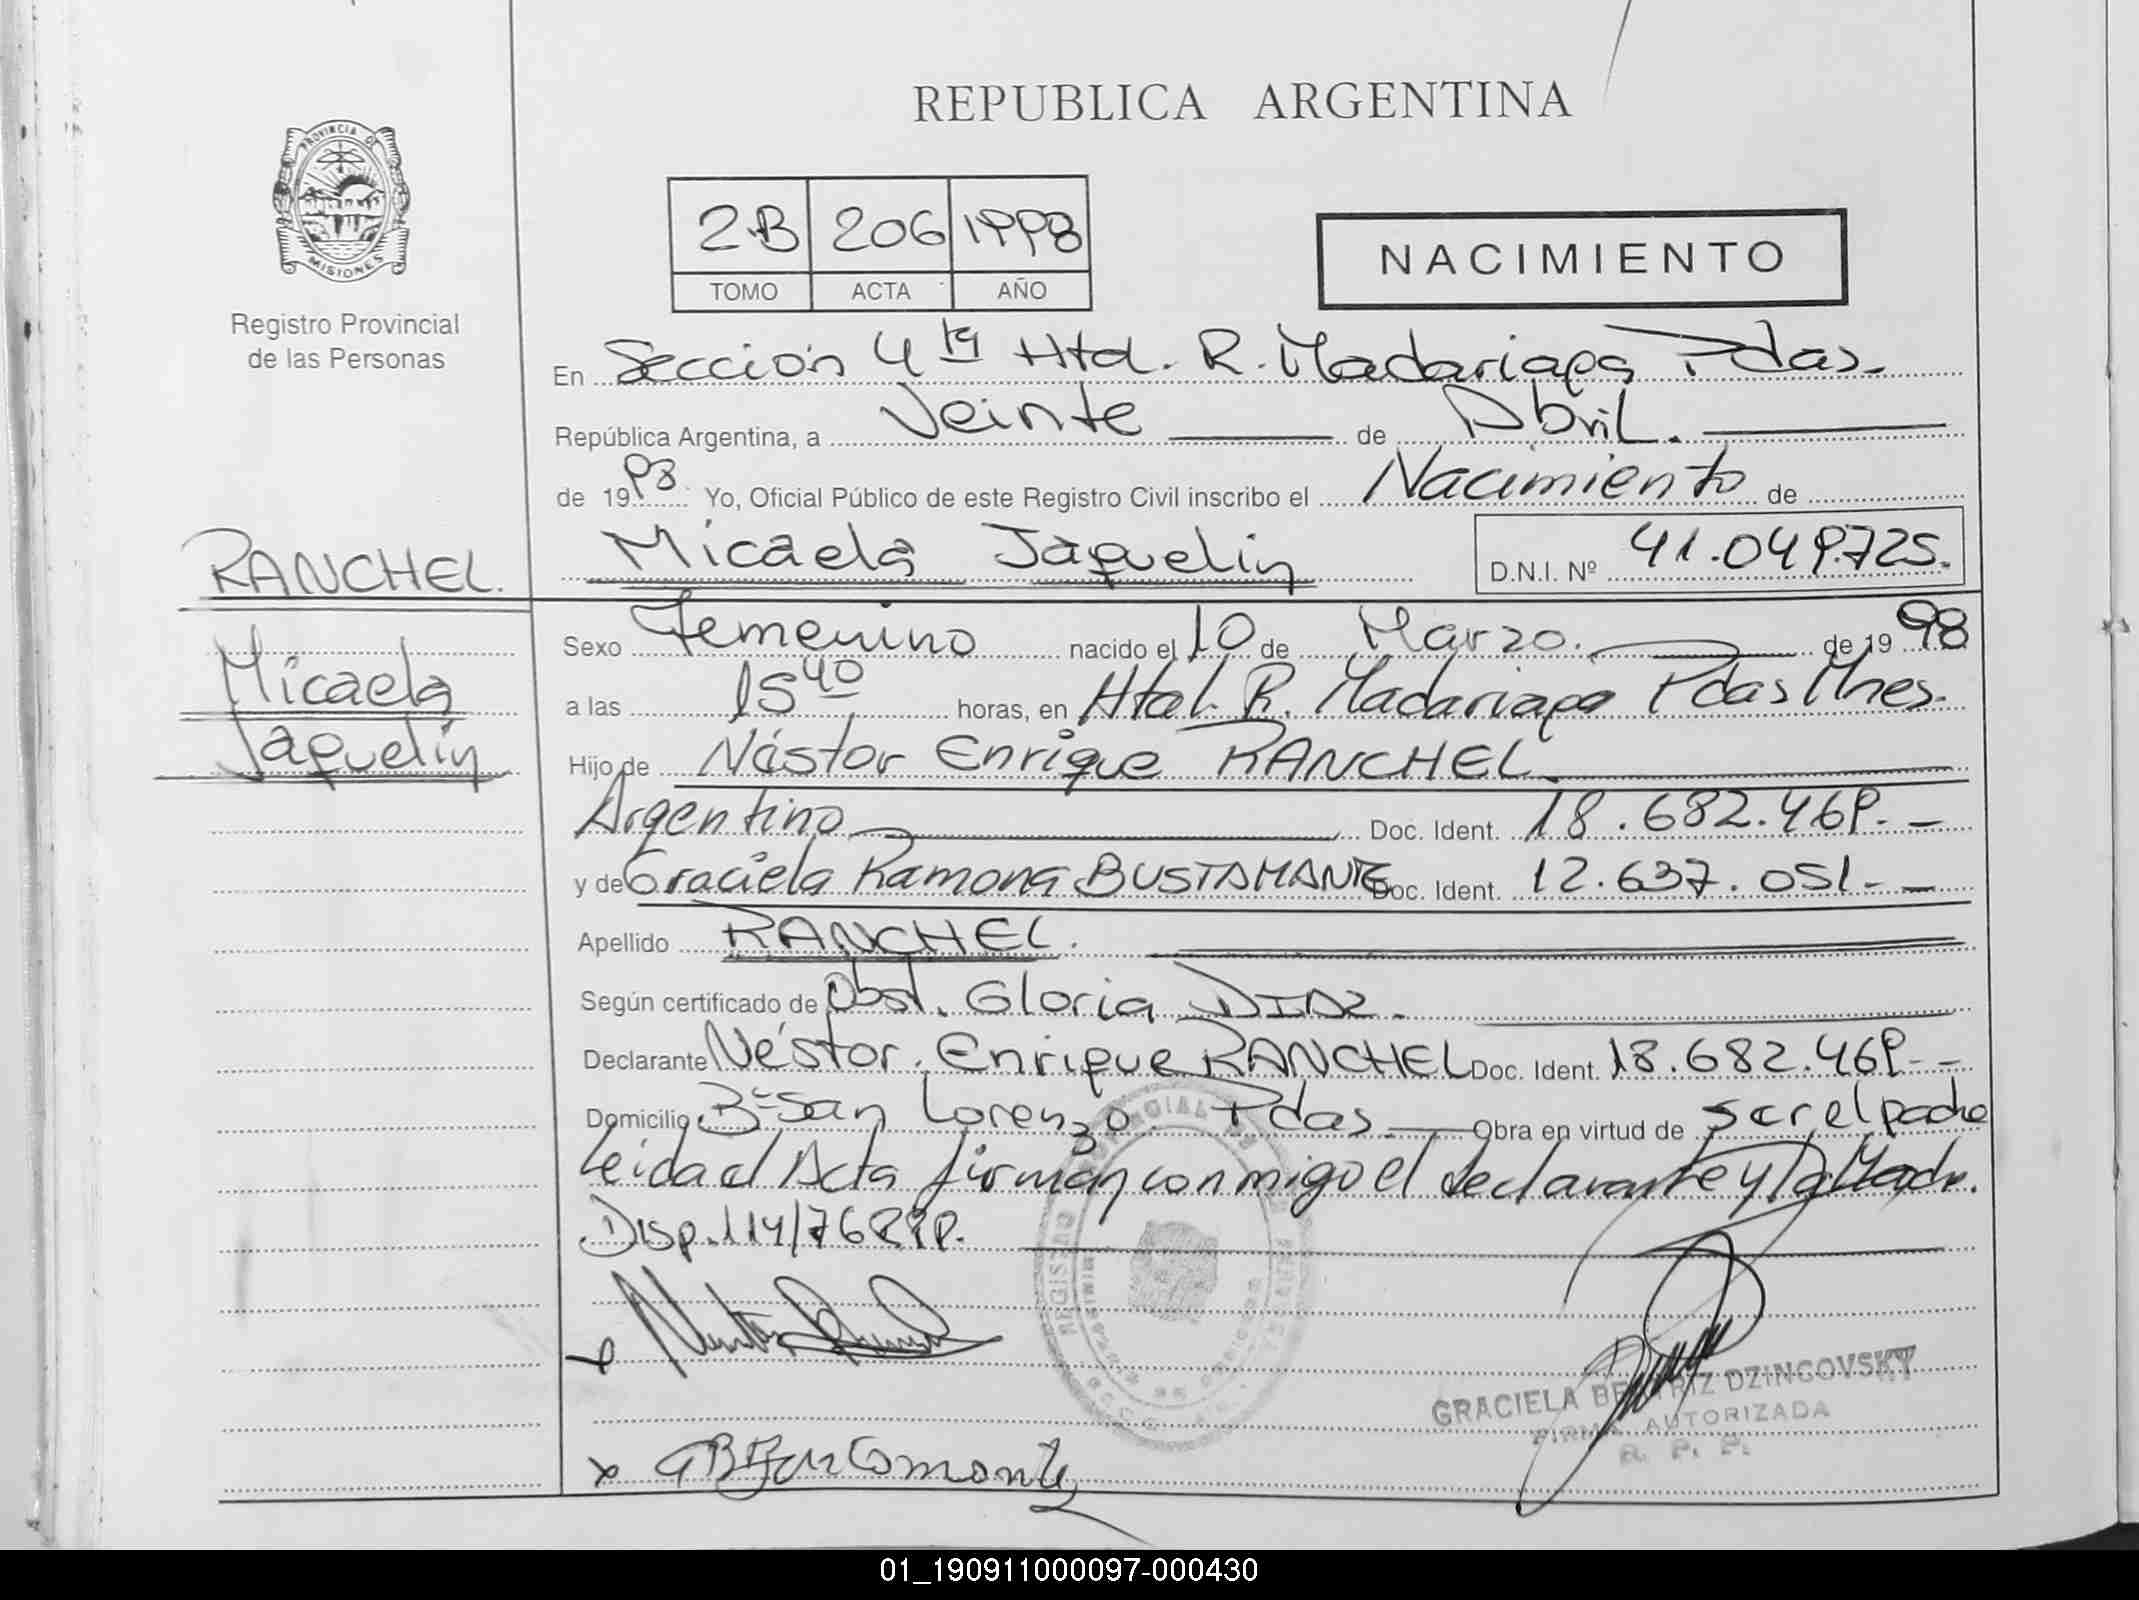 REPUBLICA ARGENTINA
PROVINCIA DE
MISIONES
Registro Provincial
de las Personas
2.B 206 1998
TOMO ACTA AÑO
NACIMIENTO
En Sección 4ta Htal. R. Madariaga Pdas.
República Argentina, a Veinte de Abril.
de 1998 Yo, Oficial Público de este Registro Civil inscribo el Nacimiento de
RANCHEL.
Micaela Jaquelin D.N.I. Nº 41.049.725.
Micaela
Jaquelin
Sexo Femenino nacido el 10 de Marzo. de 1998
a las 15 40 horas, en Htal. R. Madariaga Pdas Mnes.
Hijo de Néstor Enrique RANCHEL.
Argentino Doc. Ident. 18.682.469.-
y de Graciela Ramona BUSTAMANTE Doc. Ident. 12.637.051.-
Apellido RANCHEL.
Según certificado de Obst. Gloria DIAZ.
Declarante Néstor Enrique RANCHEL Doc. Ident. 18.682.469.-
Domicilio Bº San Lorenzo Pdas. Obra en virtud de ser el padre
Leida el Acta firman conmigo el declarante y la Madre.
Disp. 114/76
REGISTRO PROVINCIAL DE LAS PERSONAS
MINISTERIO DE GOBIERNO
GRACIELA BEATRIZ DZINCOVSKY
FIRMA AUTORIZADA
R. P. P.
01_190911000097-000430